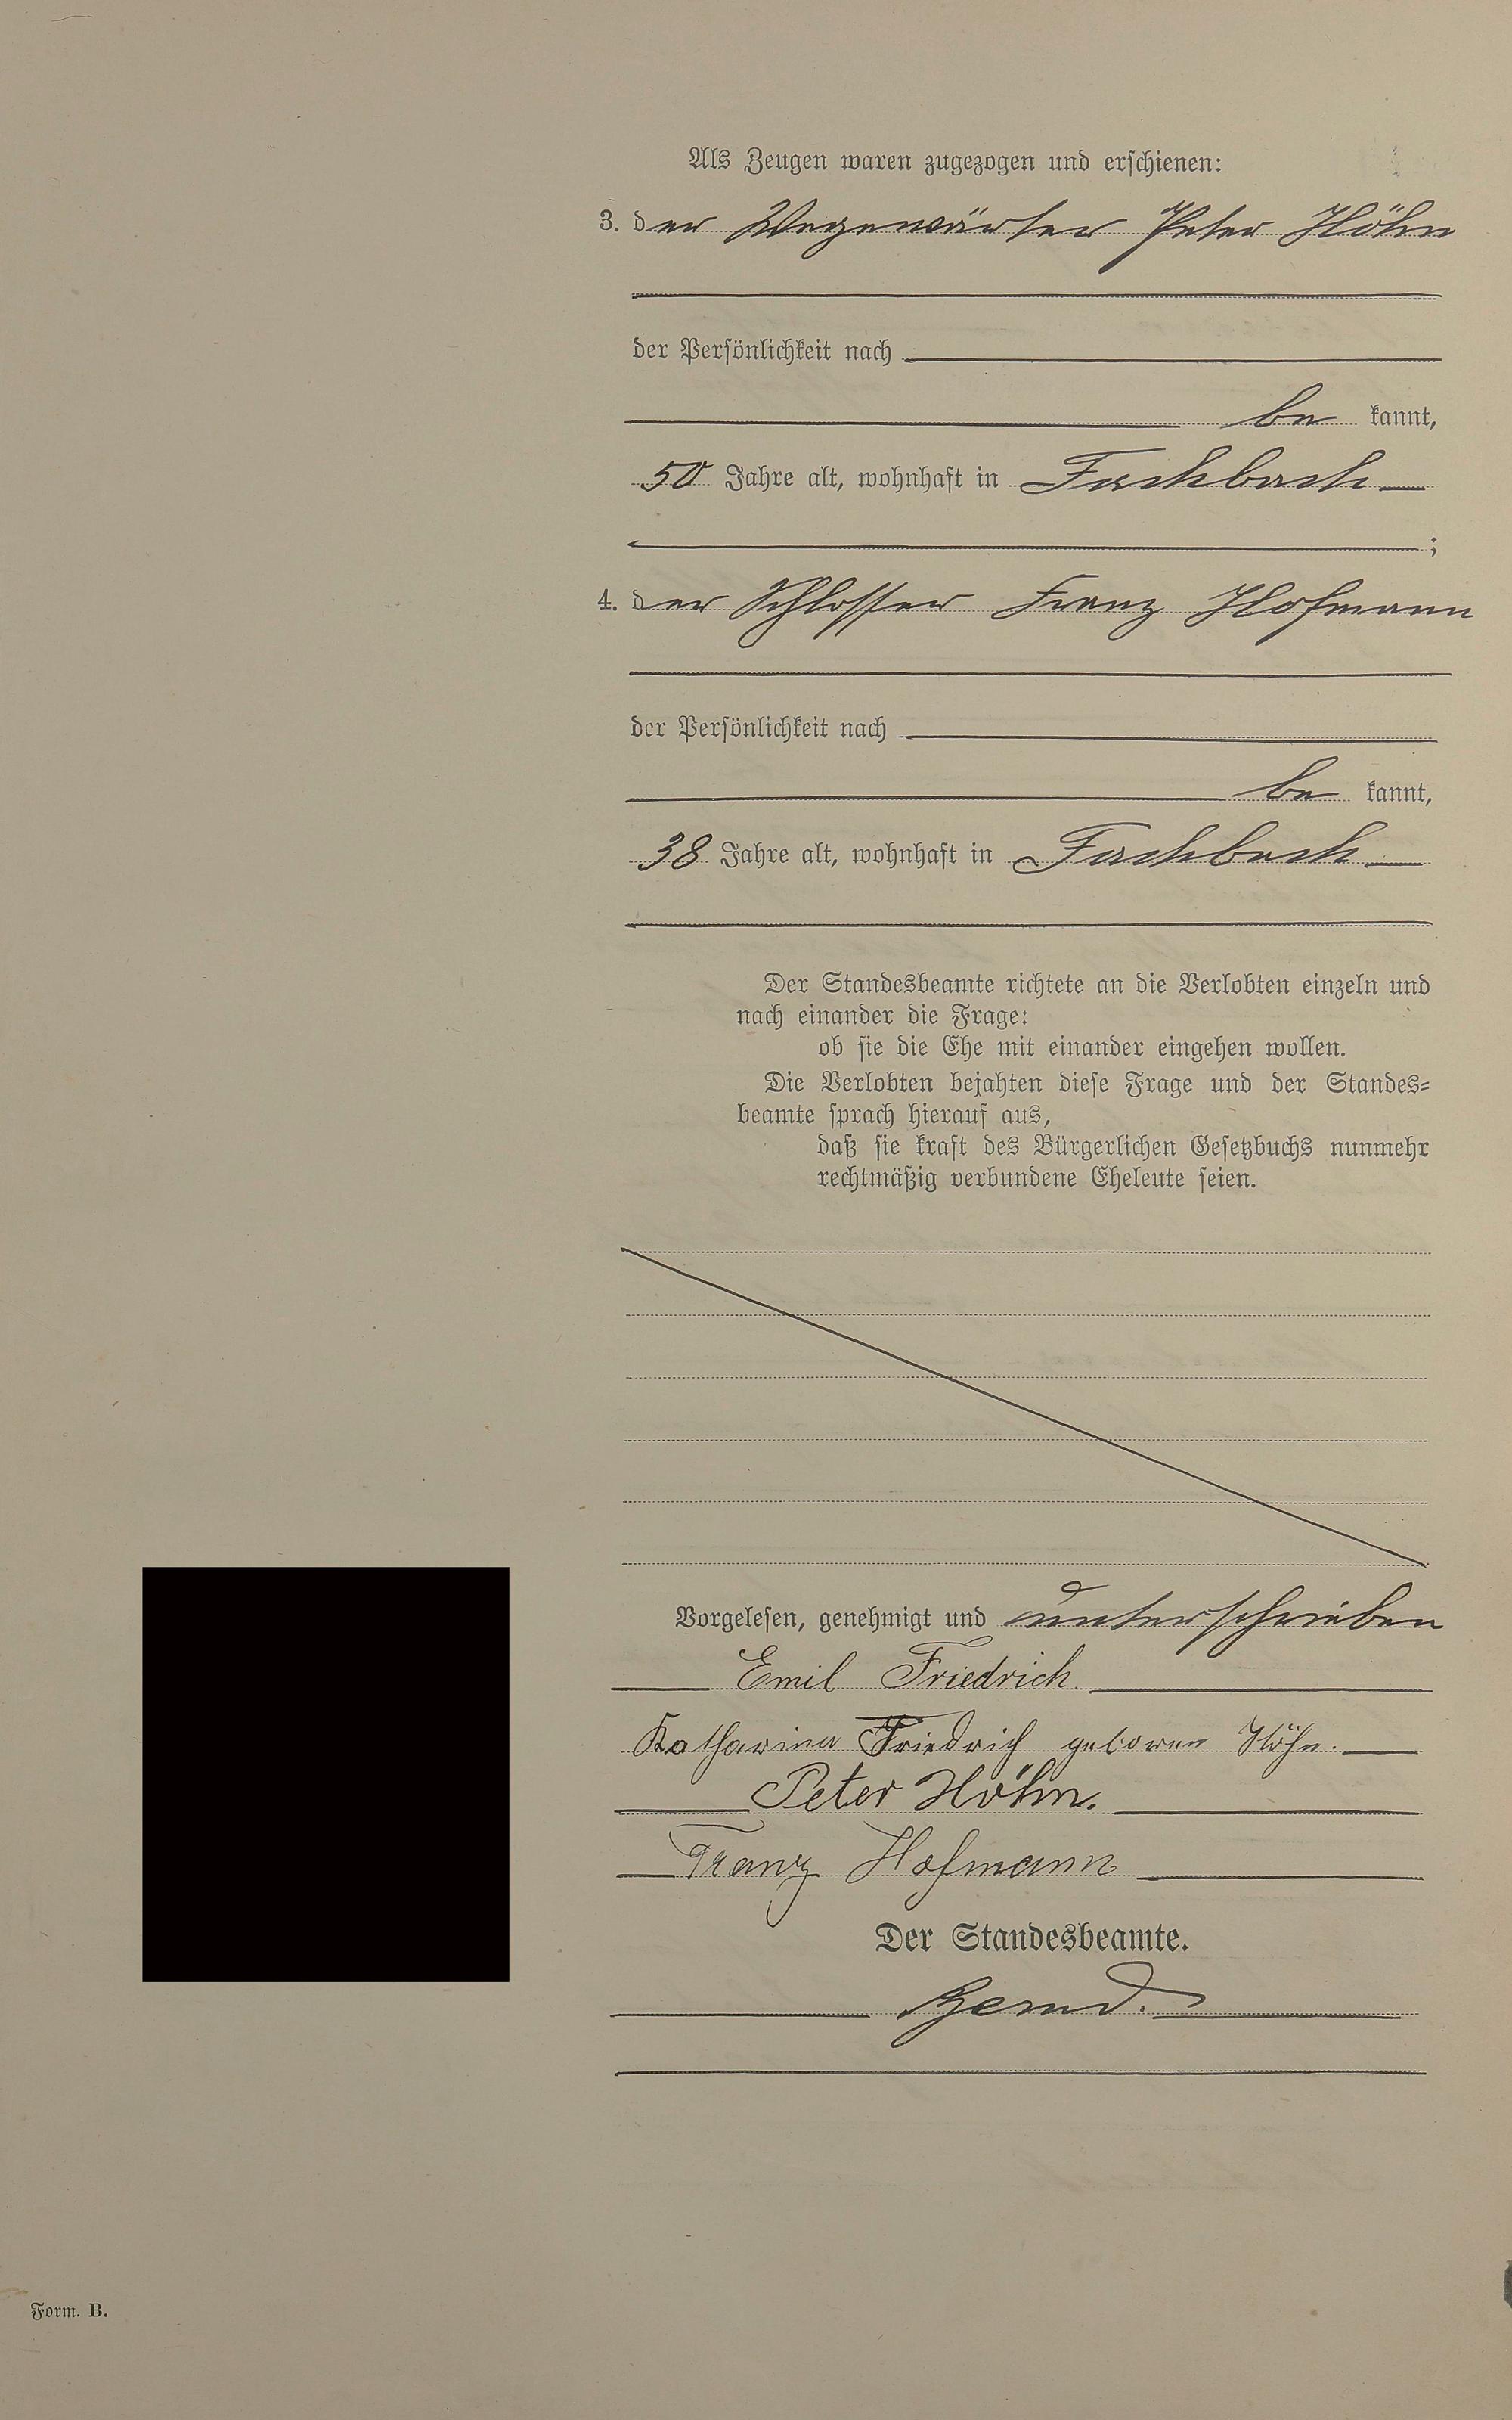 Als Zeugen waren zugezogen und erschienen:
3. der Wegewärter Peter Höhn
der Persönlichkeit nach
be kannt,
50 Jahre alt, wohnhaft in Fachbach
;
4. der Schlosser Franz Hofmann
der Persönlichkeit nach
be kannt,
38 Jahre alt, wohnhaft in Fachbach
Der Standesbeamte richtete an die Verlobten einzeln und
nach einander die Frage:
ob sie die Ehe mit einander eingehen wollen.
Die Verlobten bejahten diese Frage und der Standes=
beamte sprach hierauf aus,
daß sie kraft des Bürgerlichen Gesetzbuchs nunmehr
rechtmäßig verbundene Eheleute seien.
Vorgelesen, genehmigt und unterschrieben
Emil Friedrich
Katharina Friedrich geboren Höhn.
Peter Höhn.
Franz Hofmann
Der Standesbeamte.
Form. B.